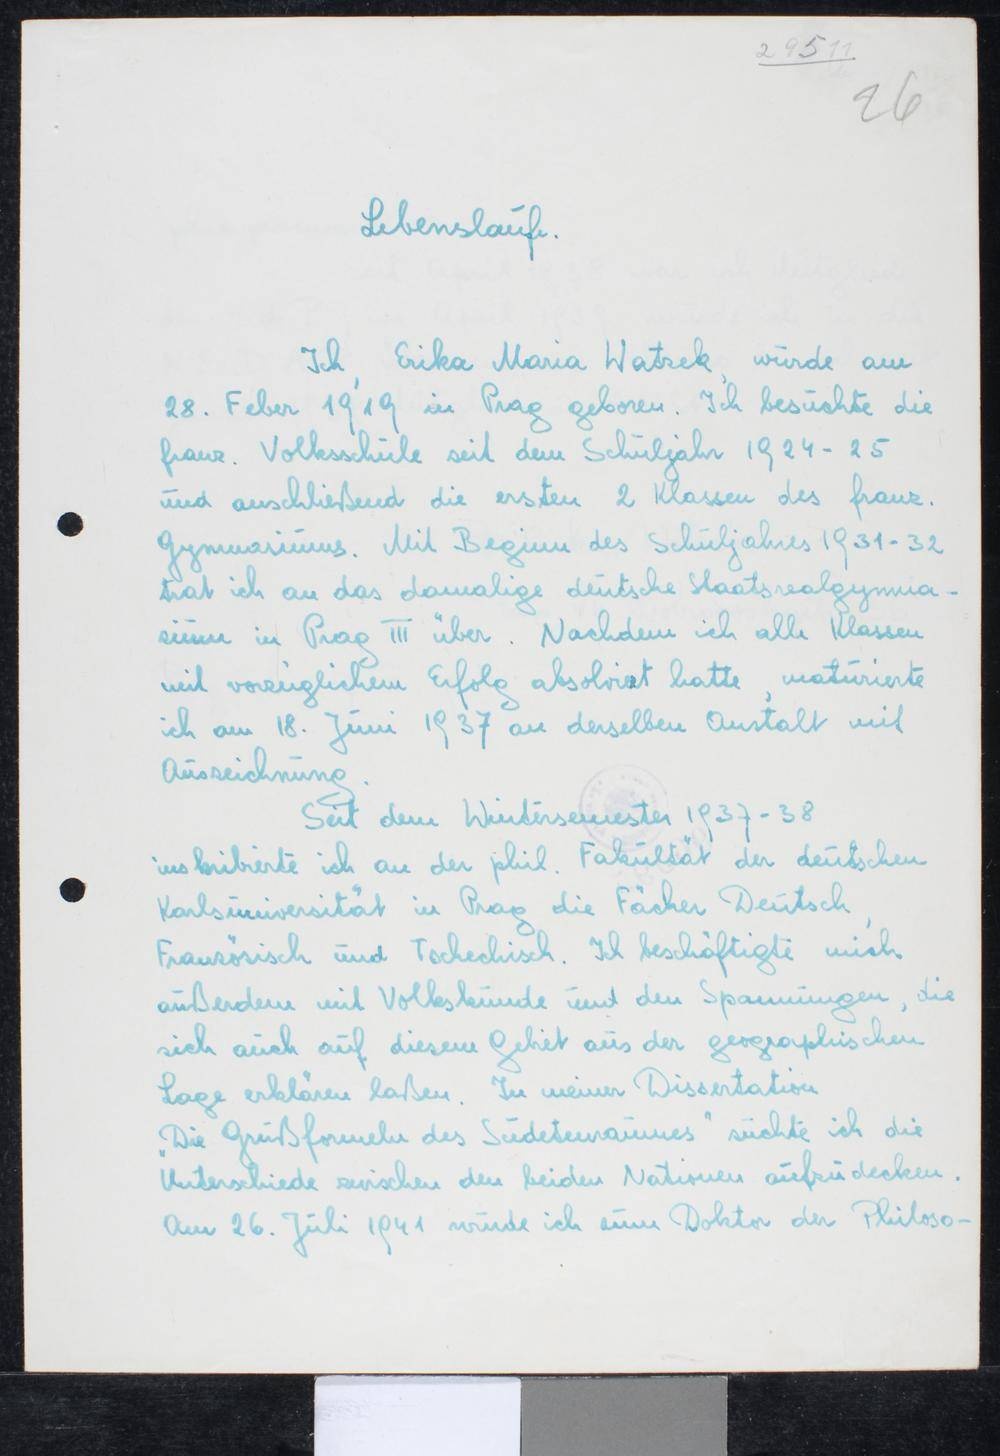 29511
26
Lebenslauf.
Ich, Erika Maria Watzek, wurde am
28. Feber 1919 in Prag geboren. Ich besuchte die
franz. Volksschule seit dem Schuljahr 1924-25
und anschließend die ersten 2 Klassen des franz.
Gymnasiums. Mit Beginn des Schuljahres 1931-32
trat ich an das damalige deutsche Staatsrealgymna-
sium in Prag III über. Nachdem ich alle Klassen
mit vorzüglichem Erfolg absolviert hatte, maturierte
ich am 18. Juni 1937 an derselben Anstalt mit
Auszeichnung.
Seit dem Wintersemester 1937-38
inskribierte ich an der phil. Fakultät der deutschen
Karlsuniversität in Prag die Fächer Deutsch,
Französisch und Tschechisch. Ich beschäftigte mich
außerdem mit Volkskunde und den Spannungen, die
sich auch auf diesem Gebiet aus der geographischen
Lage erklären laßen. In meiner Dissertation
„Die Grußformeln des Sudetenraumes" suchte ich die
Unterschiede zwischen den beiden Nationen aufzudecken.
Am 26. Juli 1941 wurde ich zum Doktor der Philoso-